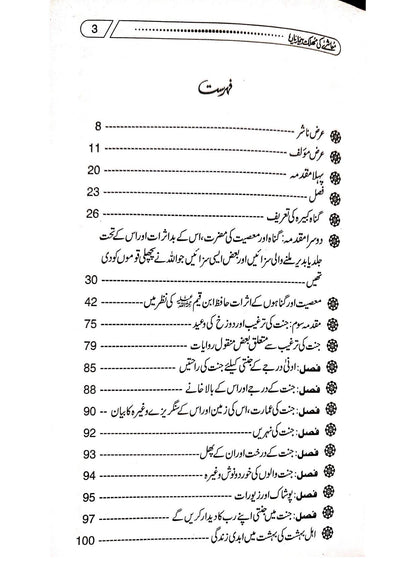 3
معاشرے کی مہلک بیماریاں
فہرست
عرض ناشر ---------- 8
عرض مؤلف ---------- 11
پہلا مقدمہ ---------- 20
فصل ---------- 23
گناہ کبیرہ کی تعریف ---------- 26
دوسرا مقدمہ: گناہ اور معصیت کی مضرت، اس کے بد اثرات اور اس کے تحت
جلد یا بدیر ملنے والی سزائیں اور بعض ایسی سزائیں جو اللہ نے پچھلی قوموں کو دی
تھیں ---------- 30
معصیت اور گناہوں کے اثرات حافظ ابن قیم ؒ کی نظر میں ---------- 42
مقدمہ سوم: جنت کی ترغیب اور دوزخ کی وعید ---------- 75
جنت کی ترغیب سے متعلق بعض منقول روایات ---------- 79
فصل: ادنیٰ درجے کے جنتی کیلئے جنت کی راحتیں ---------- 85
فصل: جنت کے درجے اور اس کے بالا خانے ---------- 88
فصل: جنت کی عمارت، اس کی زمین اور اس کے سنگریزے وغیرہ کا بیان -- 90
فصل: جنت کی نہریں ---------- 92
فصل: جنت کے درخت اور ان کے پھل ---------- 93
فصل: جنت والوں کی خورد و نوش وغیرہ ---------- 94
فصل: پوشاک اور زیورات ---------- 95
فصل: جنت میں جنتی اپنے رب کا دیدار کریں گے ---------- 97
اہل بہشت کی بہشت میں ابدی زندگی ---------- 100